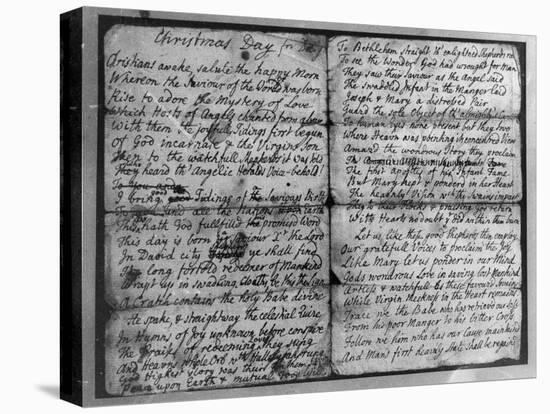 Christmas Day for Dolly
Christians awake, salute the happy Morn
Whereon the Saviour of the World was born
Rise to adore the Mystery of Love
Which Hosts of Angels chanted from above
With them the Joyfull Tidings first begun
of God incarnate & the Virgins Son
Then to the watchfull Shepherds it was told
Who heard th' Angelic Herald's Voice - behold!
I bring good Tidings of the Saviours Birth
To you and all the Nations upon Earth
This Day hath God fullfill'd the promised Word
This day is born a Saviour X the Lord
In David's city Shepherds ye shall find
The long foretold redeemer of Mankind
Wrapt up in swadling Cloaths be this the sign
A Cratch contains the Holy Babe divine
He spake, & straightway the celestial Quire
In Hymns of Joy unknown before conspire
The Praises of redeeming Love they sung
And Heav'ns whole Orb with Hallelujahs rung
God's Highest Glory was their Anthem still
Peace upon Earth & mutual Good Will
To Bethlehem straight th' enlight'ned Shepherds ran
To see the Wonder God had wrought for Man
They saw their Saviour as the Angel said
The Swaddled Infant in the Manger laid
Joseph & Mary a distressed Pair
Guard the sole Object of th' Almighty's Care
To human Eyes none present but they two
Where Heav'n was pointing its concentred View
Amaz'd the wondrous Story they proclaim
The first Apostles of his Infant Fame
But Mary kept & ponder'd in her Heart
The heav'nly Vision wch the Swains impart
They to their Flocks & praising God return
With Hearts no doubt yt did within them burn
Let us like these good Shepherds then employ
Our gratefull Voices to proclaim the Joy
Like Mary let us ponder in our Mind
Gods wondrous Love in saving lost Mankind
Artless & watchfull as these favour'd Swains
While Virgin Meekness in the Heart remains
Trace we the Babe who has retriev'd our Loss
From his poor Manger to his bitter Cross
Follow we him who has our Cause maintain'd
And Man's first heav'nly State shall be regain'd